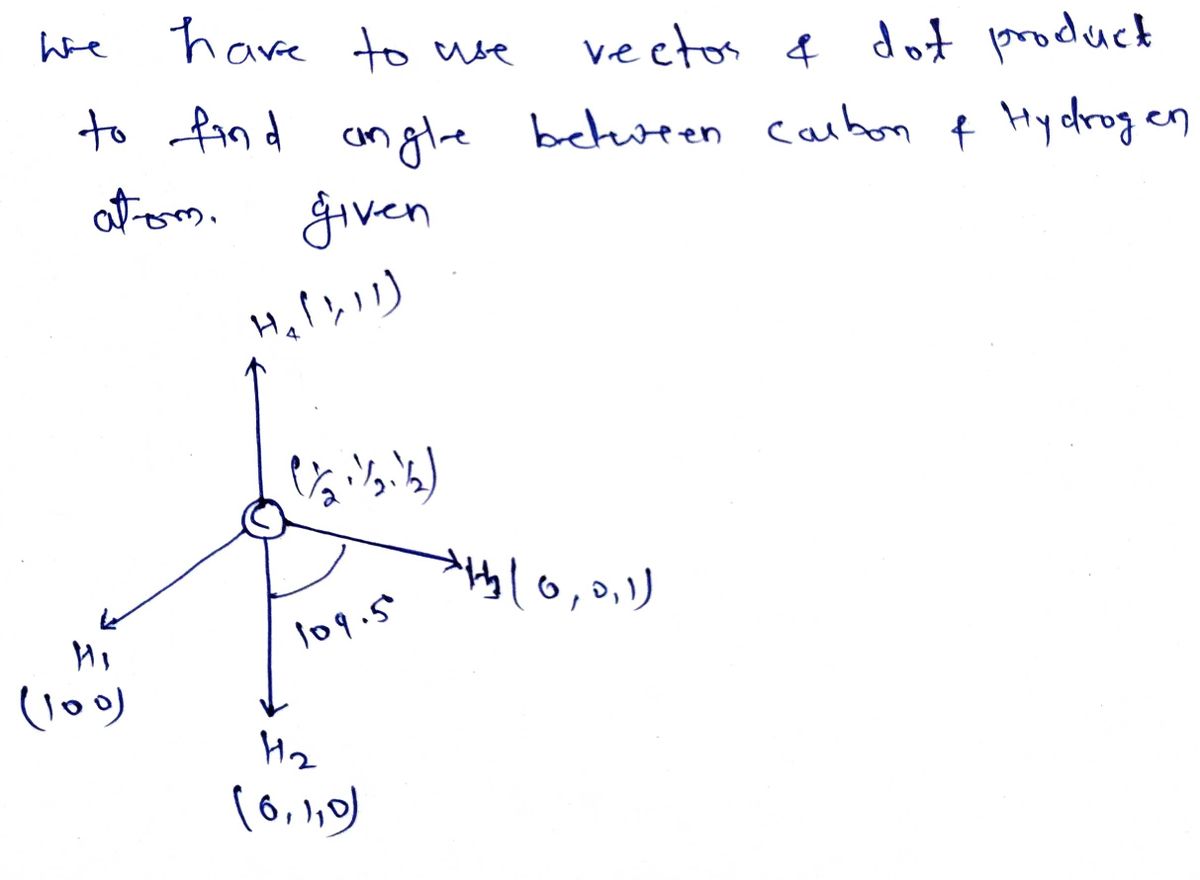 We have to use vector & dot product
to find angle between carbon & Hydrogen
atom. given
H4(1,11)
(1/2,1/2,1/2)
C
H3(0,0,1)
109.5
H1
(100)
H2
(0,1,0)